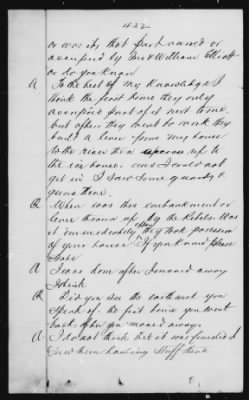 432
or was it that first owned or
occupied by Mrs & William Elliott
or do you know
A To the best of my knowledge I
think the first home they only
occupied part of it next to me.
but after they went to work they
built a levee from my house
to the river then up to
the ice house. and I could not
get in I saw some guards &
guns there.
Q When was this embankment or
levee thrown up by the Rebels. Was
it immediately after they took possession
of your house? If you know please
state
A It was done after I moved away
I think
Q Did you see the earthwork you
speak of the first time you went
back after you moved away.
A I do not think but it was finished I
saw them hauling stuff there